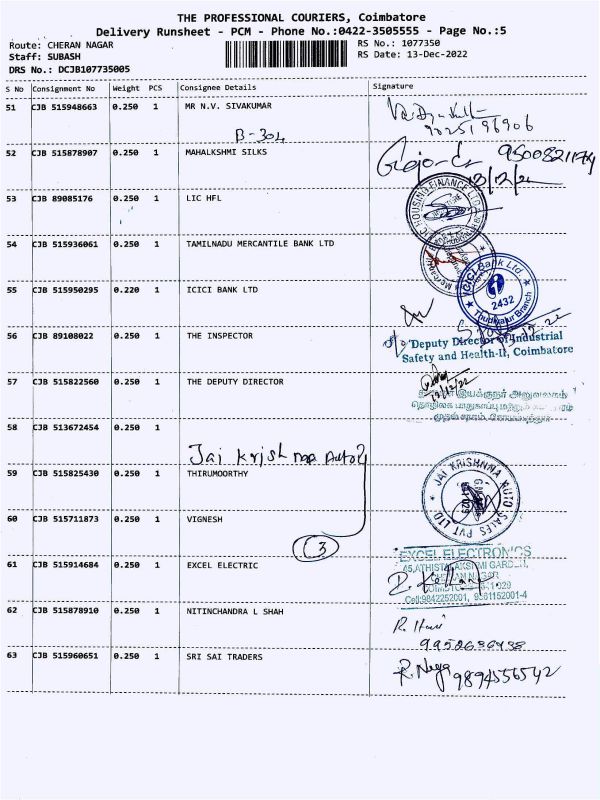 THE PROFESSIONAL COURIERS, Coimbatore
Delivery Runsheet - PCM - Phone No.:0422-3505555 - Page No.:5
Route: CHERAN NAGAR RS No.: 1077350
Staff: SUBASH RS Date: 13-Dec-2022
DRS No.: DCJB107735005
S No Consignment No Weight PCS Consignee Details Signature
51 CJB 515948663 0.250 1 MR N.V. SIVAKUMAR
B-304 9025196906
52 CJB 515878907 0.250 1 MAHALKSHMI SILKS
53 CJB 89085176 0.250 1 LIC HFL
HOUSING FINANCE LTD
54 CJB 515936061 0.250 1 TAMILNADU MERCANTILE BANK LTD
ICICI Bank Ltd.
55 CJB 515950295 0.220 1 ICICI BANK LTD
2432
Thudiyalur Branch
56 CJB 89108022 0.250 1 THE INSPECTOR
Deputy Director of Industrial
Safety and Health-II, Coimbatore
57 CJB 515822560 0.250 1 THE DEPUTY DIRECTOR
58 CJB 513672454 0.250 1
Jai Krishnaa Auto
59 CJB 515825430 0.250 1 THIRUMOORTHY
JAI KRISHNNA AUTO SALES PVT LTD
60 CJB 515711873 0.250 1 VIGNESH
3
EXCEL ELECTRONICS
61 CJB 515914684 0.250 1 EXCEL ELECTRIC
Cell:9842252001,
62 CJB 515878910 0.250 1 NITINCHANDRA L SHAH
R. Hari
63 CJB 515960651 0.250 1 SRI SAI TRADERS
9894556542